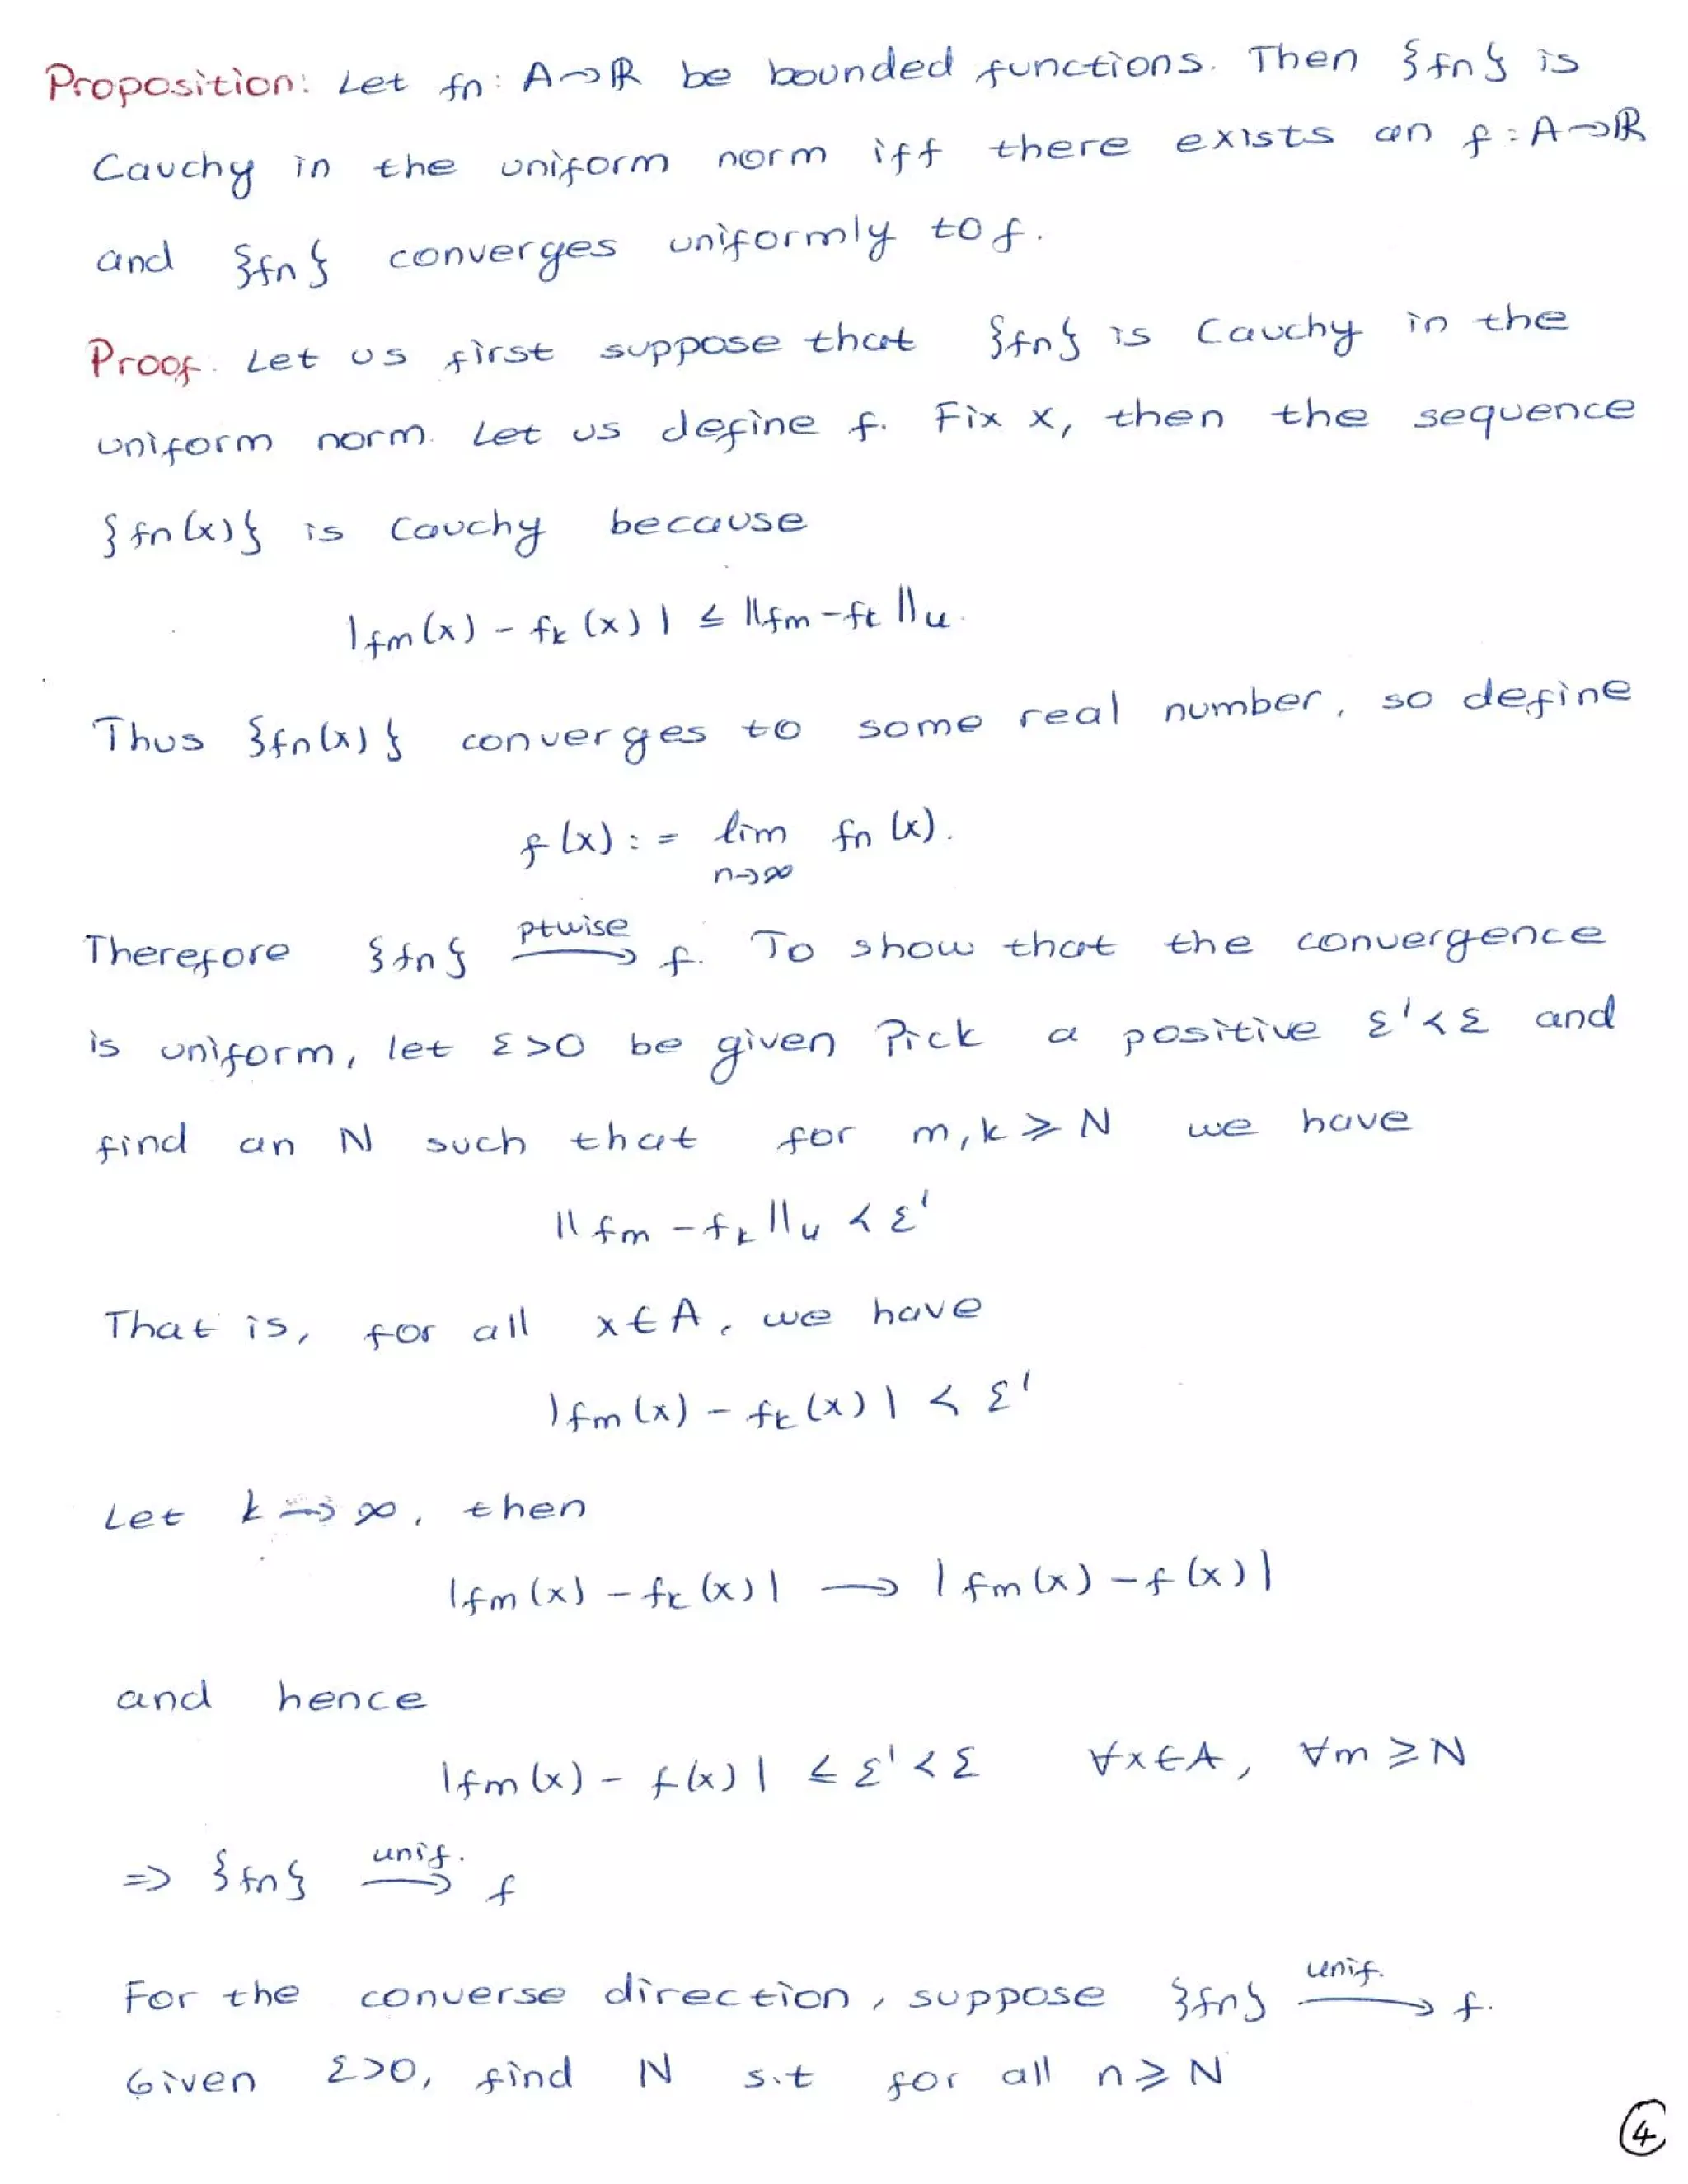 Proposition: Let fn: A→ℝ be bounded functions. Then {fn} is
Cauchy in the uniform norm iff there exists an f: A→ℝ
and {fn} converges uniformly to f.
Proof. Let us first suppose that {fn} is Cauchy in the
uniform norm. Let us define f. Fix x, then the sequence
{fn(x)} is Cauchy because
|fm(x) - fk(x)| ≤ ||fm - fk||u.
Thus {fn(x)} converges to some real number, so define
f(x) := lim fn(x).
n→∞
Therefore {fn} ptwise→ f. To show that the convergence
is uniform, let ε>0 be given Pick a positive ε'<ε and
find an N such that for m,k ≥ N we have
||fm - fk||u < ε'
That is, for all x∈A, we have
|fm(x) - fk(x)| < ε'
Let k→∞, then
|fm(x) - fk(x)| → |fm(x) - f(x)|
and hence
|fm(x) - f(x)| ≤ ε' < ε ∀x∈A, ∀m ≥ N
=> {fn} unif.→ f
For the converse direction, suppose {fn} unif.→ f.
Given ε>0, find N s.t for all n ≥ N
4